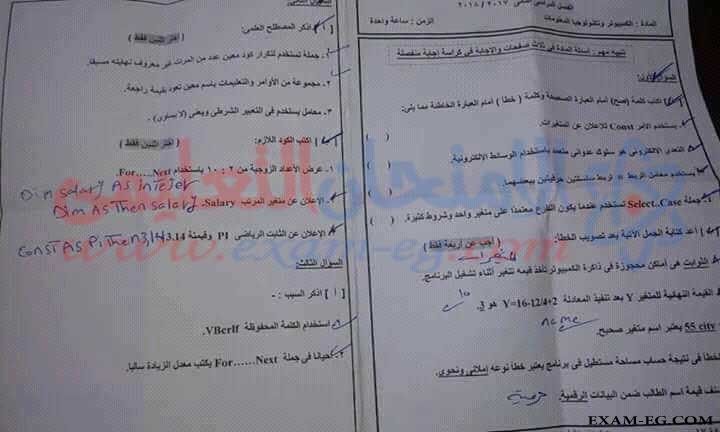 الفصل الدراسي الثاني ٢٠١٧ / ٢٠١٨
المادة : الكمبيوتر وتكنولوجيا المعلومات
الزمن : ساعة واحدة
تنبيه مهم : أسئلة المادة في ثلاث صفحات والإجابة في كراسة إجابة منفصلة
السؤال الأول:
[أ] اكتب كلمة (صح) أمام العبارة الصحيحة وكلمة ( خطأ ) أمام العبارة الخاطئة مما يأتى:
يستخدم الأمر Const للإعلان عن المتغيرات. ( )
التعدى الإلكترونى هو سلوك عدوانى متعمد باستخدام الوسائط الالكترونية. ( )
يستخدم معامل الربط = لربط سلسلتين حرفيتين ببعضهما. ( )
جملة Select..Case تستخدم عندما يكون التفرع معتمدا على متغير واحد وشروط كثيرة. ( )
أعد كتابة الجمل الآتية بعد تصويب الخطأ: (أجب عن أربعة فقط)
المتغيرات
الثوابت هى أماكن محجوزة فى ذاكرة الكمبيوتر تأخذ قيمه تتغير أثناء تشغيل البرنامج.
القيمة النهائية للمتغير Y بعد تنفيذ المعادلة Y=16-12/4+2 هو 3.
name
55 city يعتبر اسم متغير صحيح.
الخطأ فى نتيجة حساب مساحة مستطيل فى برنامج يعتبر خطأ نوعه إملائى ونحوى.
قيمة اسم الطالب ضمن البيانات الرقمية.
حرفية
السؤال الثانى:
[أ] اذكر المصطلح العلمى: (اختر اثنين فقط)
١. جملة تستخدم لتكرار كود معين عدد من المرات غير معروف نهايته مسبقا.
٢. مجموعة من الأوامر والتعليمات باسم معين تعود بقيمة راجعة.
٣. معامل يستخدم فى التعبير الشرطى ويعنى (لا يساوى).
اكتب الكود اللازم: (اختر اثنين فقط)
١. عرض الأعداد الزوجية من ٢ : ١٠ باستخدام For.....Next.
Dim Salary As Intejer
الإعلان عن متغير المرتب Salary.
Dim As Then Salary
الإعلان عن الثابت الرياضى PI وقيمتة 3.14
السؤال الثالث:
[أ] اذكر السبب : -
استخدام الكلمة المحفوظة VBcrlf.
٢. أحيانا فى جملة For......Next يكتب معدل الزيادة سالبا.
الامتحان التعليمى
www.exam-eg.com
EXAM-EG.COM